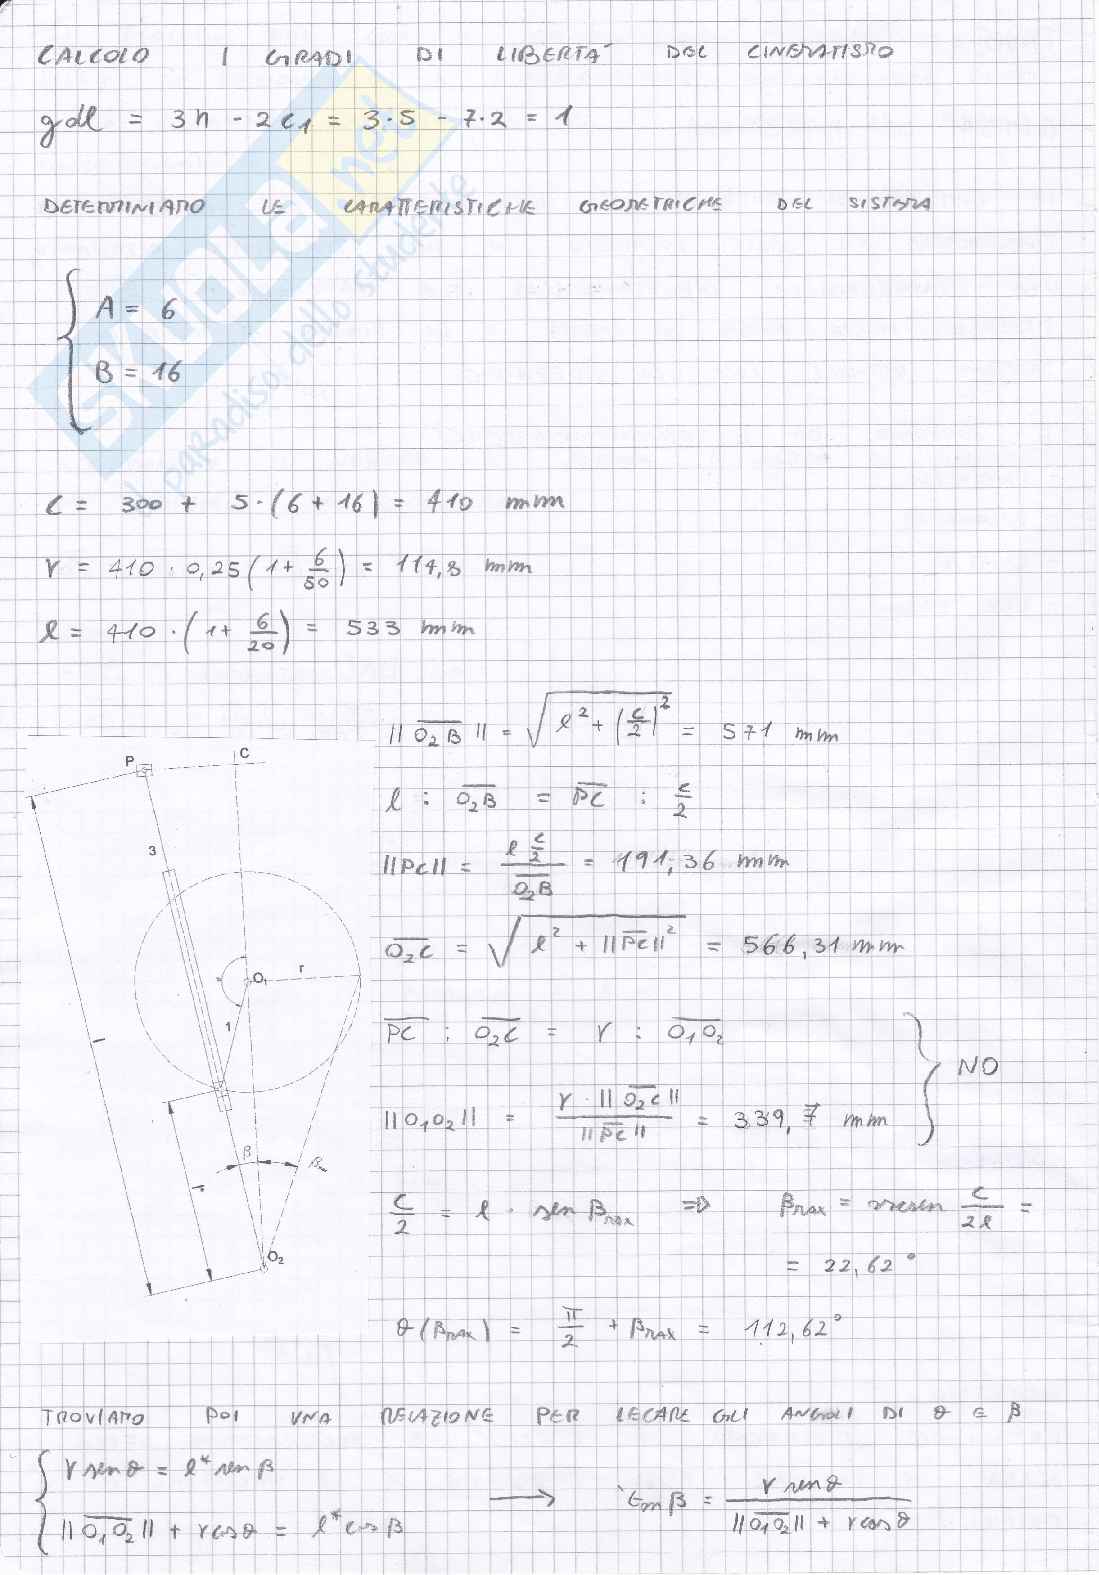 CALCOLO I GRADI DI LIBERTA' DEL CINEMATISMO
gdl = 3n - 2c₁ = 3·5 - 7·2 = 1
DETERMINIAMO LE CARATTERISTICHE GEOMETRICHE DEL SISTEMA
A = 6
B = 16
C = 300 + 5·(6+16) = 410 mm
r = 410 · 0,25 (1 + 6/50) = 114,8 mm
l = 410 · (1 + 6/20) = 533 mm
||O₂B|| = √(l² + (c/2)²) = 571 mm
l : O₂B = PC : c/2
||PC|| = (l c/2)/O₂B = 191,36 mm
O₂C = √(l² + ||PC||²) = 566,31 mm
PC : O₂C = r : O₁O₂
||O₁O₂|| = (r · ||O₂C||)/||PC|| = 339,7 mm
NO
C/2 = l · sen βmax ⇒ βmax = arcsen C/2l =
= 22,62°
θ(βmax) = π/2 + βmax = 112,62°
P
C
3
O₁
r
1
l
β
O₂
TROVIAMO POI UNA RELAZIONE PER LEGARE GLI ANGOLI DI θ E β
r senθ = l* senβ
||O₁O₂|| + r cosθ = l* cosβ → tan β = (r senθ)/(||O₁O₂|| + r cosθ)
SKUOLA.net
il paradiso dello studente